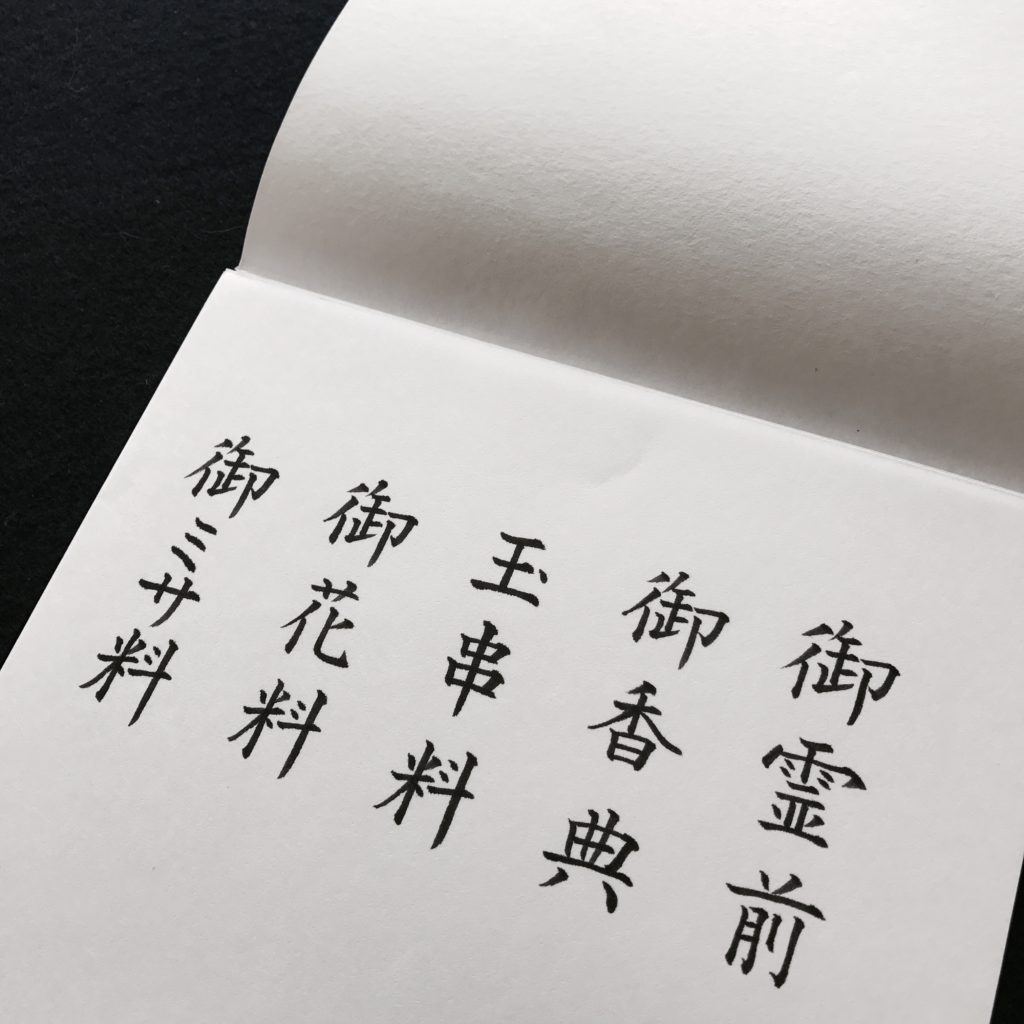 御霊前
御香典
玉串料
御花料
御ミサ料